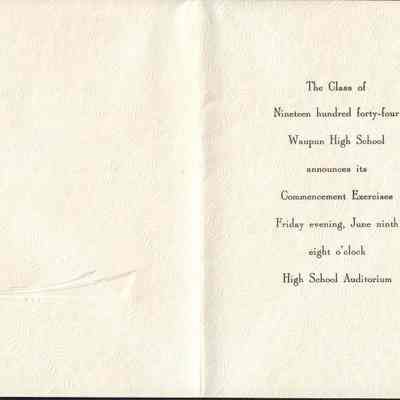 The Class of
Nineteen hundred forty-four
Waupun High School
announces its
Commencement Exercises
Friday evening, June ninth
eight o'clock
High School Auditorium